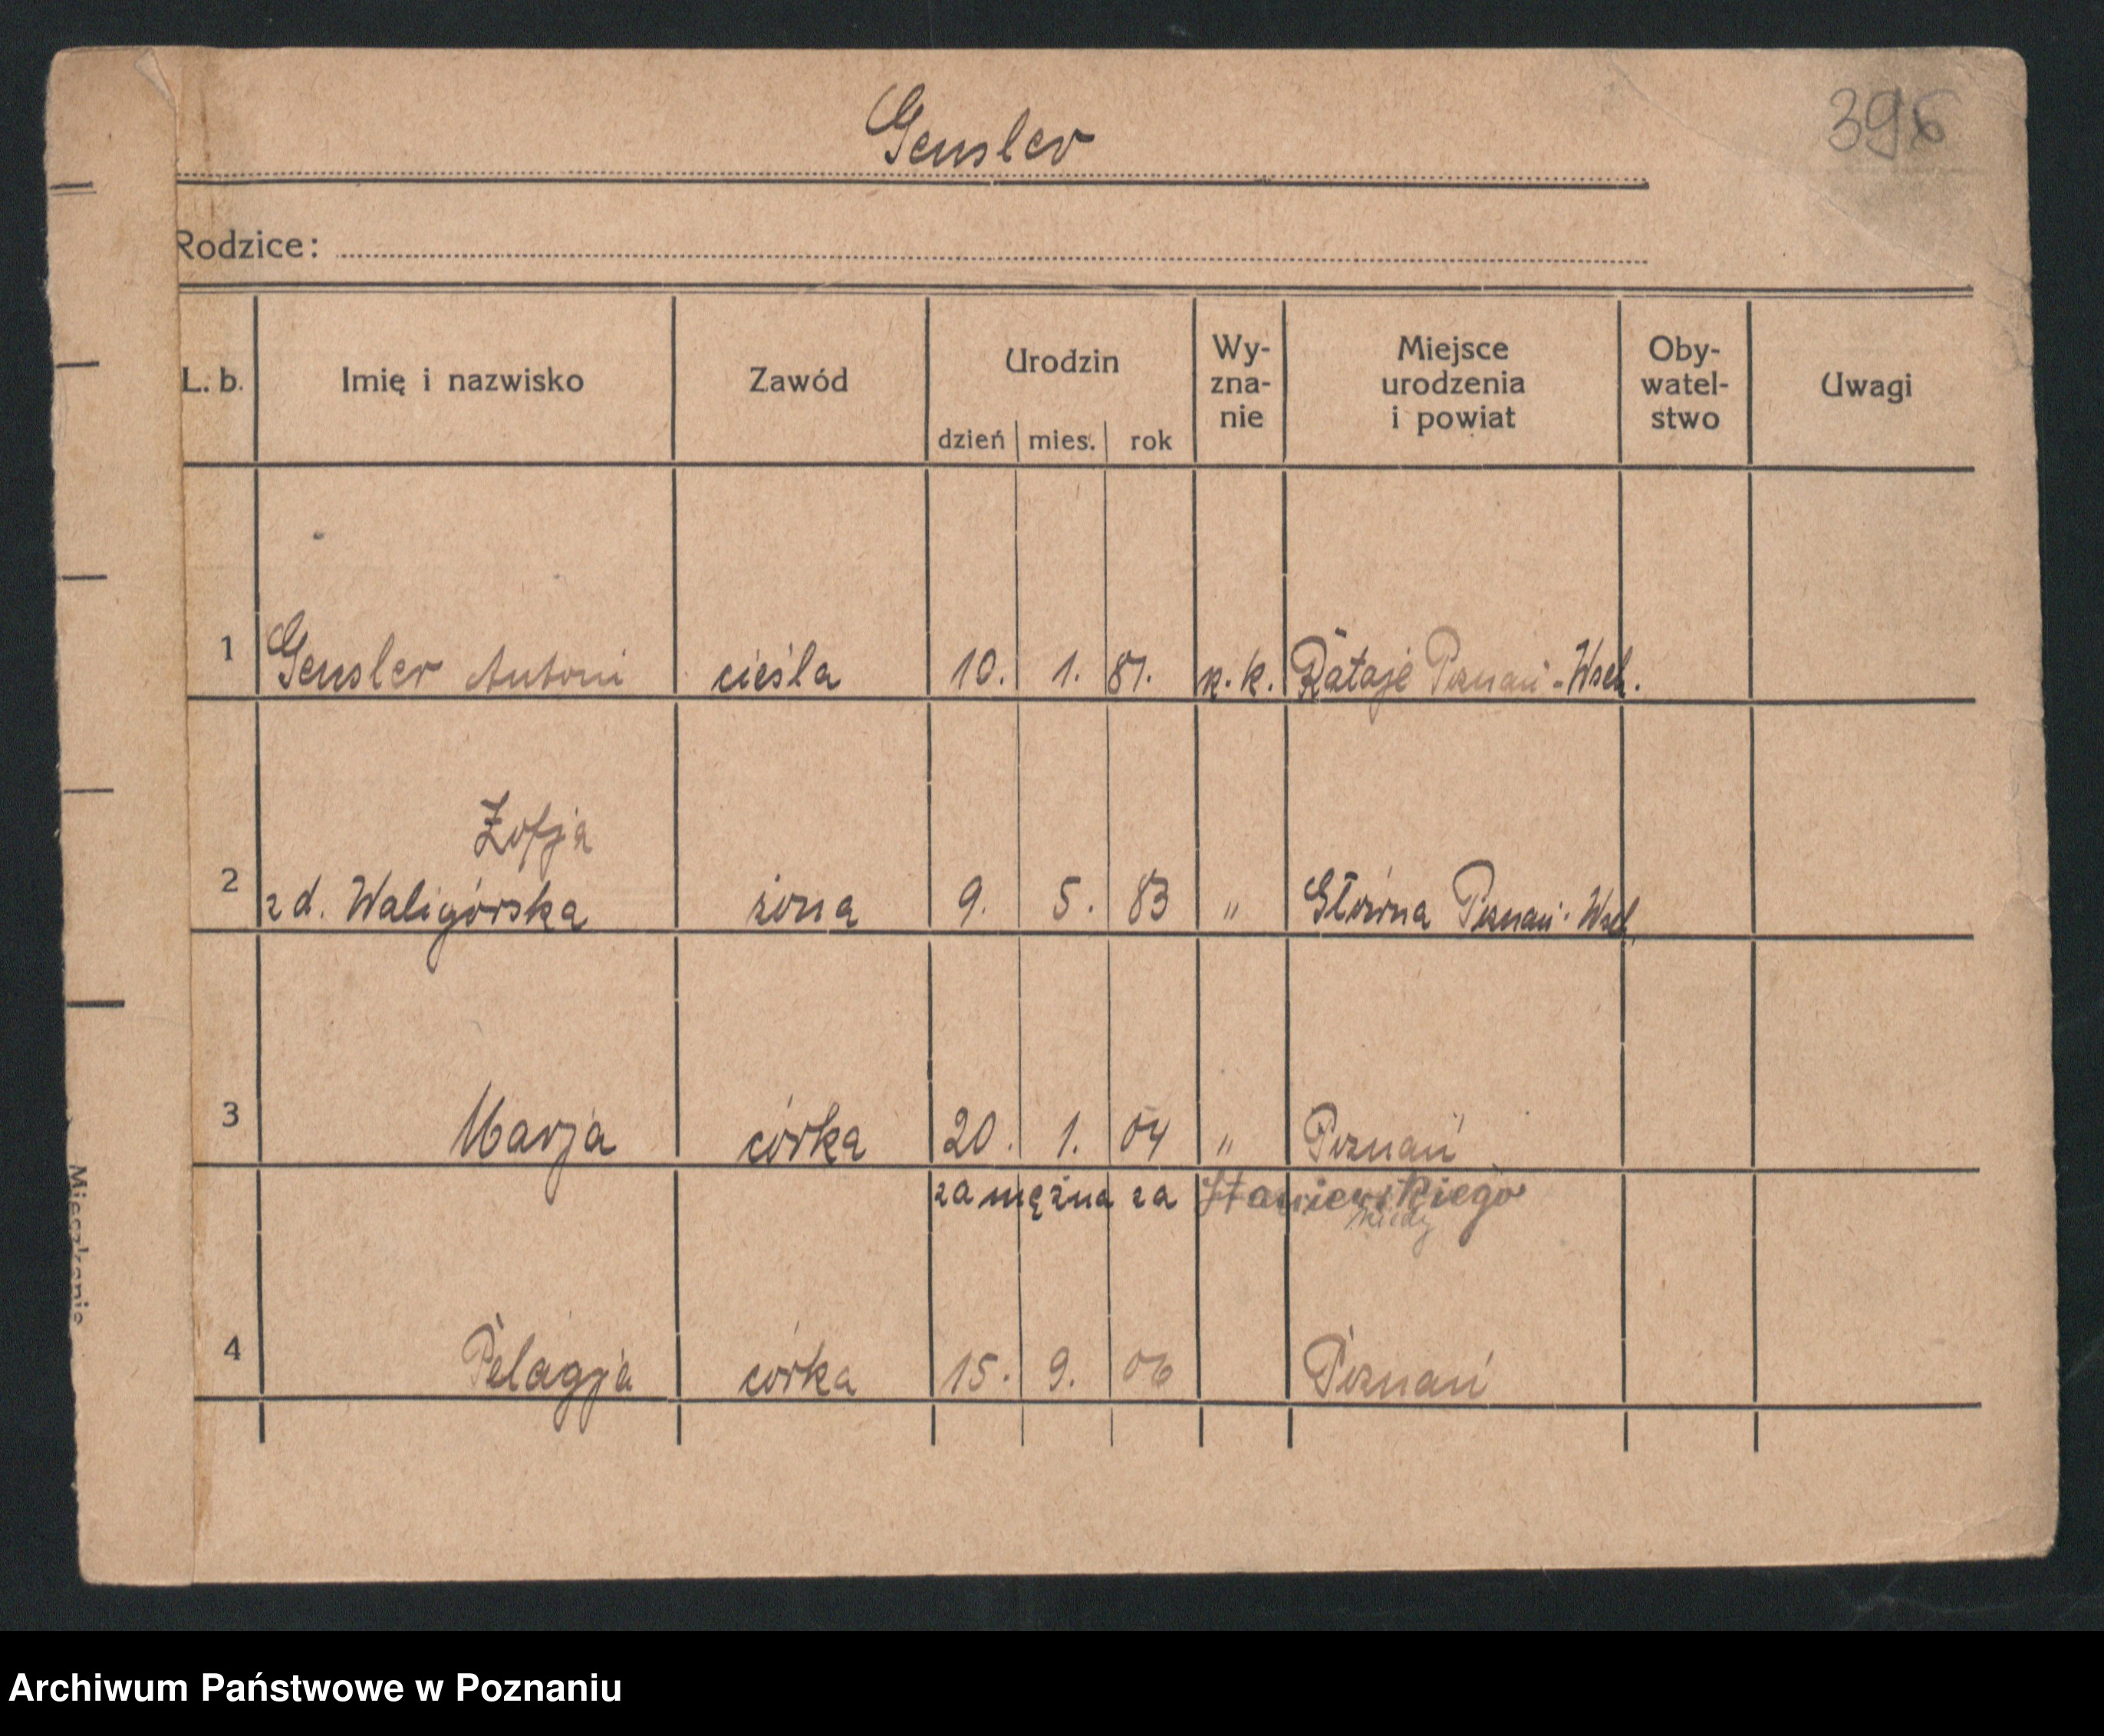 Gensler
396
Rodzice:
L. b. Imię i nazwisko Zawód Urodzin dzień mies. rok Wy-zna-nie Miejsce urodzenia i powiat Oby-watel-stwo Uwagi
1 Gensler Antoni cieśla 10. 1. 81. r. k. Rataje Poznań-Wsch.
Zofja
2 z d. Waligórska żona 9. 5. 83 " Główna Poznań-Wsch.
3 Marja córka 20. 1. 04 " Poznań
zamężna za Staniewskiego
4 Pelagja córka 15. 9. 06 Poznań
Mieszkanie
Archiwum Państwowe w Poznaniu